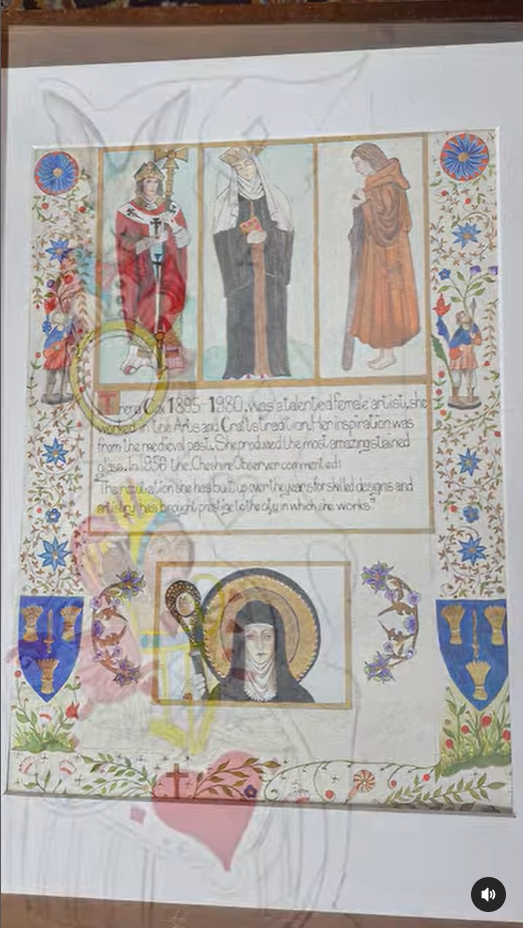 Trena Cox 1895-1980, was a talented female artist, she
worked in the Arts and Crafts tradition. Her inspiration was
from the medieval past. She produced the most amazing stained
glass. In 1956 the Cheshire Observer commented:
"The reputation she has built up over the years for skilled designs and
artistry has brought prestige to the city in which she works."